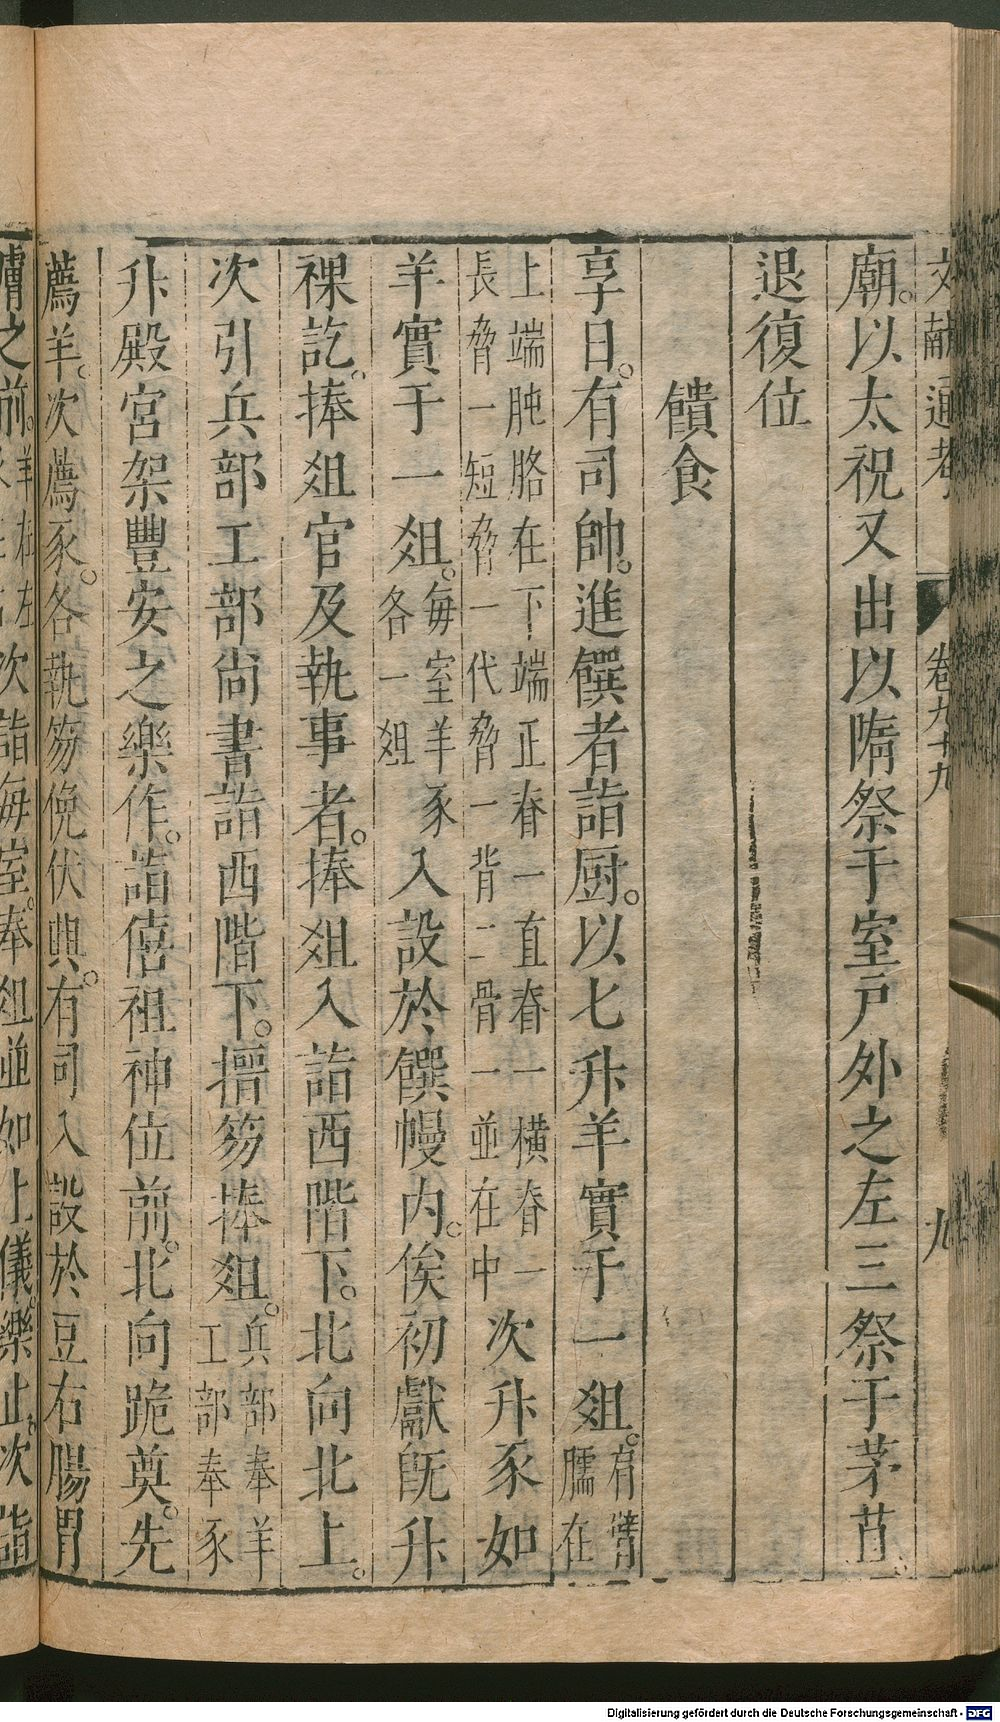 文獻通考 卷九十九 九
廟。以太祝又出以隋祭于室戸外之左三祭于茅苴。
退復位
饋食
享日。有司帥。進饌者詣厨。以七升羊實于一俎。有臂臑在
上端肫胳在下端正脊一直脊一橫脊一長脅一短脅一代脅一背二骨一並在中次升豕如
羊實于一俎。每室羊豕各一俎入設於饌幔内。俟初獻旣升
祼訖。捧俎官及執事者。捧俎入詣西階下。北向北上。
次引兵部工部尙書詣西階下。搢笏捧俎。兵部奉羊工部奉豕
升殿宮架豐安之樂作。詣僖祖神位前。北向跪奠。先
薦羊。次薦豕。各執笏俛伏興。有司入設於豆右腸胃
膚之前。次詣每室。奉俎並如上儀。樂止。次詣
Digitalisierung gefördert durch die Deutsche Forschungsgemeinschaft - DFG